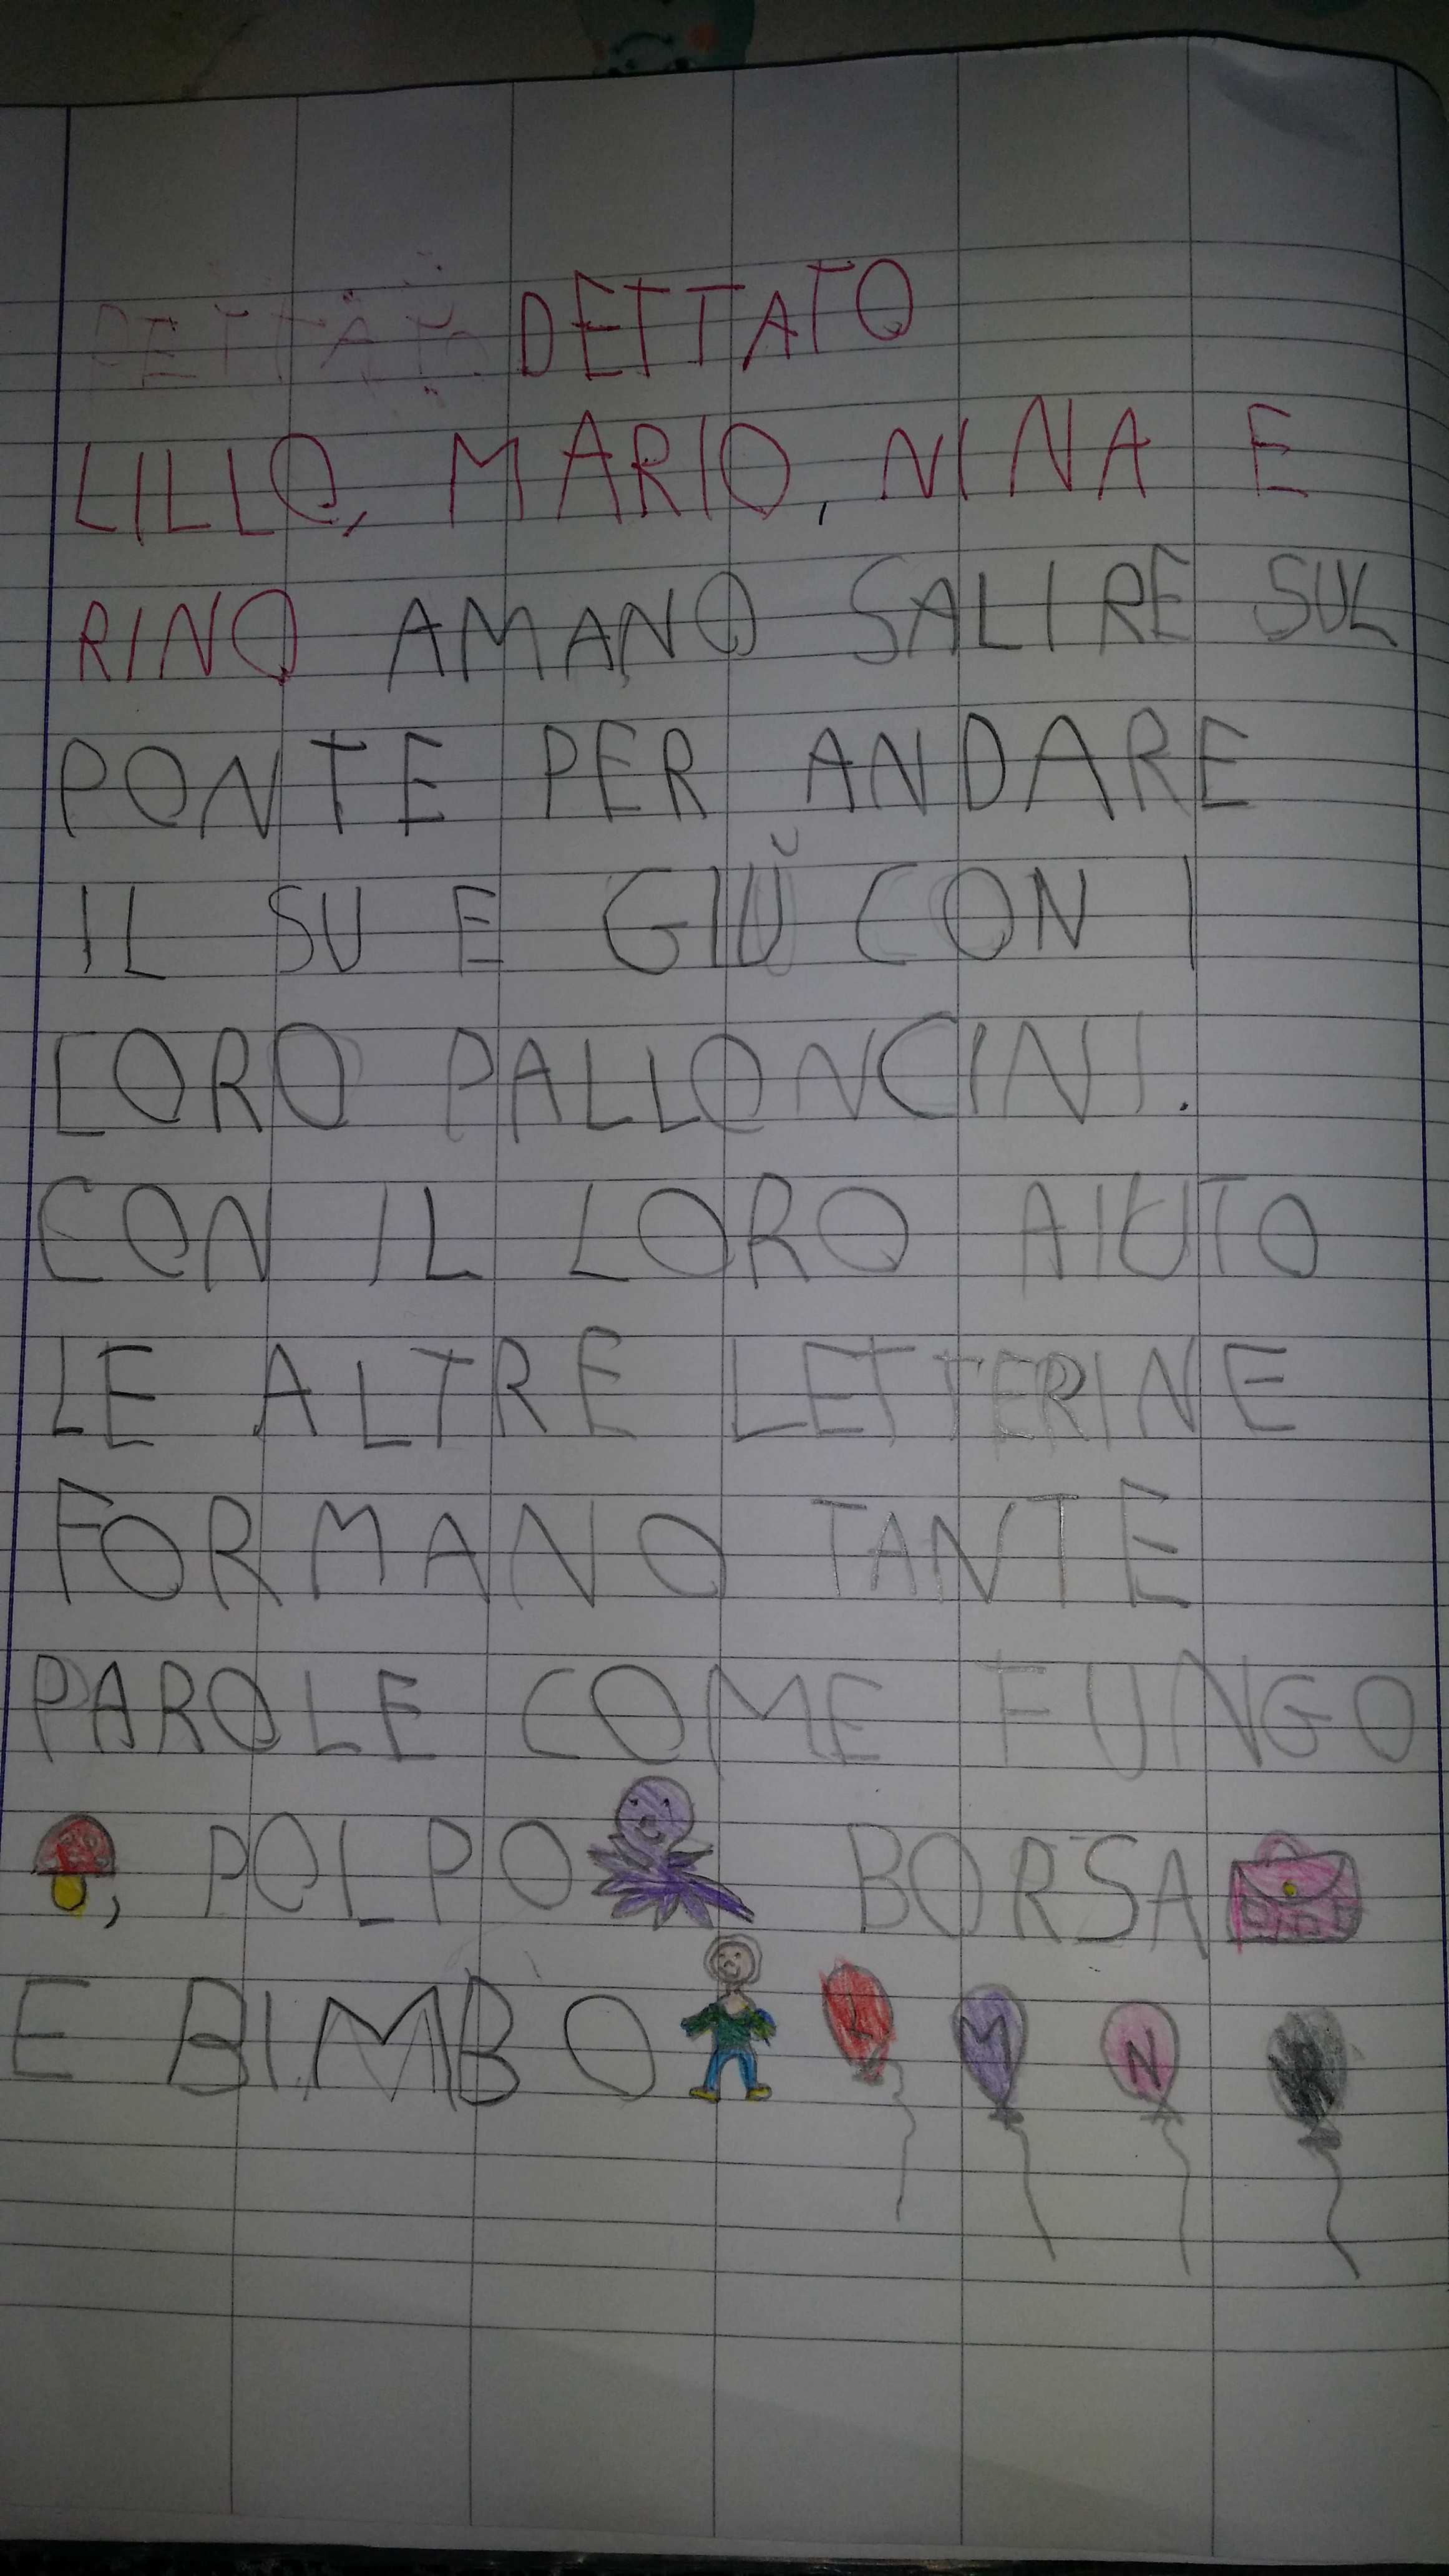 DETTATO DETTATO
LILLO, MARIO, NINA E
RINO AMANO SALIRE SUL
PONTE PER ANDARE
IL SU E GIÙ CON I
LORO PALLONCINI.
CON IL LORO AIUTO
LE ALTRE LETTERINE
FORMANO TANTE
PAROLE COME FUNGO
, POLPO BORSA
E BIMBO L M N